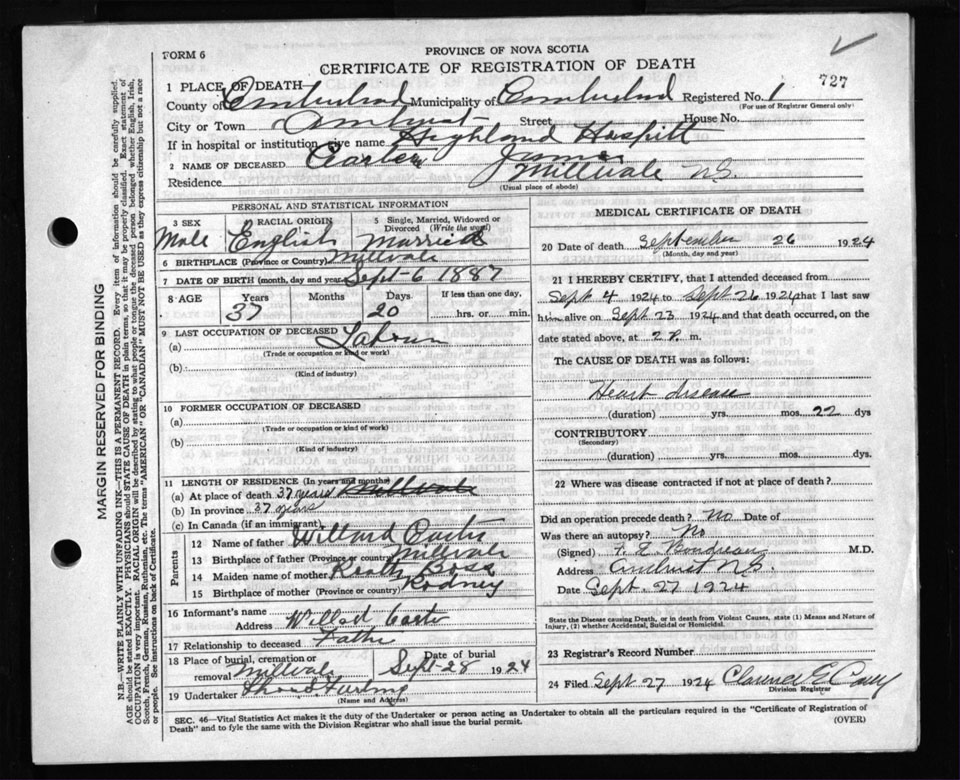 FORM 6
PROVINCE OF NOVA SCOTIA
CERTIFICATE OF REGISTRATION OF DEATH
727
1 PLACE OF DEATH
County of Cumberland Municipality of Cumberland Registered No. 1
(For use of Registrar General only)
City or Town Amherst Street House No.
If in hospital or institution, give name Highland Hospitl
2 NAME OF DECEASED Carter James
Residence Millvale N.S.
(Usual place of abode)
PERSONAL AND STATISTICAL INFORMATION
3 SEX Male
4 RACIAL ORIGIN English
5 Single, Married, Widowed or Divorced (Write the word) Married
6 BIRTHPLACE (Province or Country) Millvale
7 DATE OF BIRTH (month, day and year) Sept 6 1887
8 AGE Years Months Days If less than one day,
37 20 hrs. or min.
9 LAST OCCUPATION OF DECEASED
(a) Labour
(Trade or occupation or kind or work)
(b)
(Kind of industry)
10 FORMER OCCUPATION OF DECEASED
(a)
(Trade or occupation or kind of work)
(b)
(Kind of industry)
11 LENGTH OF RESIDENCE (In years and months)
(a) At place of death 37 years
(b) In province 37 years
(c) In Canada (if an immigrant)
Parents
12 Name of father Willard Carter
13 Birthplace of father (Province or country) Millvale
14 Maiden name of mother Ross
15 Birthplace of mother (Province or country) Rodney
16 Informant's name
Address Willard Carter
17 Relationship to deceased Father
18 Place of burial, cremation or removal Millvale
Date of burial Sept-28 1924
19 Undertaker Furlong
(Name and Address)
MEDICAL CERTIFICATE OF DEATH
20 Date of death September 26 1924
(Month, day and year)
21 I HEREBY CERTIFY, that I attended deceased from
Sept 4 1924 to Sept 26 1924 that I last saw
him alive on Sept 23 1924 and that death occurred, on the
date stated above, at 2 P. m.
The CAUSE OF DEATH was as follows:
Heart disease
(duration) yrs. mos. 22 dys
CONTRIBUTORY
(Secondary)
(duration) yrs. mos. dys.
22 Where was disease contracted if not at place of death?
Did an operation precede death? No Date of
Was there an autopsy? No
(Signed) M.D.
Address Amherst N.S.
Date Sept. 27 1924
State the Disease causing Death, or in death from Violent Causes, state (1) Means and Nature of Injury, (2) whether Accidental, Suicidal or Homicidal.
23 Registrar's Record Number
24 Filed Sept 27 1924 Clarence E
Division Registrar
SEC. 46—Vital Statistics Act makes it the duty of the Undertaker or person acting as Undertaker to obtain all the particulars required in the "Certificate of Registration of
Death" and to fyle the same with the Division Registrar who shall issue the burial permit.
(OVER)
MARGIN RESERVED FOR BINDING
N.B.—WRITE PLAINLY WITH UNFADING INK—THIS IS A PERMANENT RECORD. Every item of information should be carefully supplied.
AGE should be stated EXACTLY. PHYSICIANS should STATE CAUSE OF DEATH in plain terms, so that it may be properly classified. Exact statement of
OCCUPATION is very important. RACIAL ORIGIN will be described by stating to what people or tongue the deceased person belonged whether English, Irish,
Scotch, French, German, Russian, Ruthenian, etc. The terms "AMERICAN" OR "CANADIAN" MUST NOT BE USED as they express citizenship but not a race
or people. See instructions on back of Certificate.